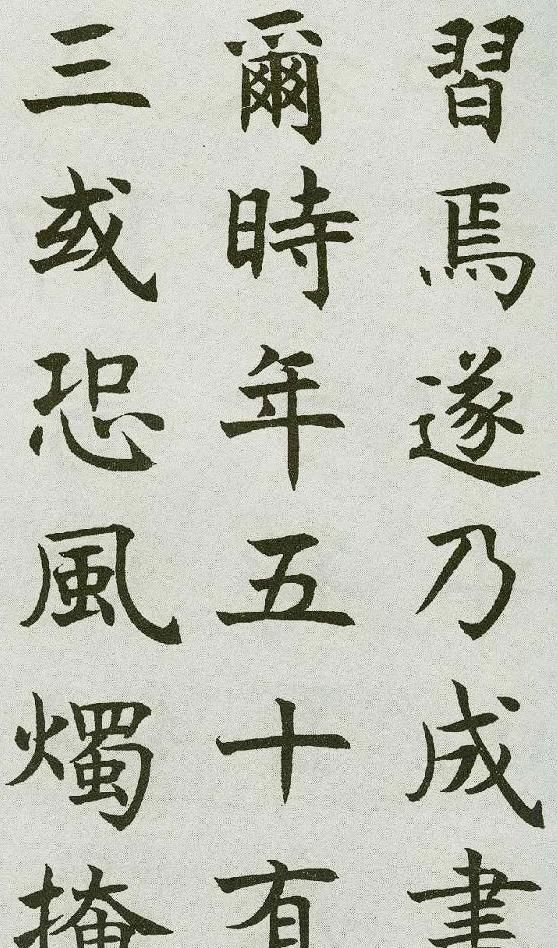 習焉遂乃成書
爾時年五十有
三或恐風燭掩